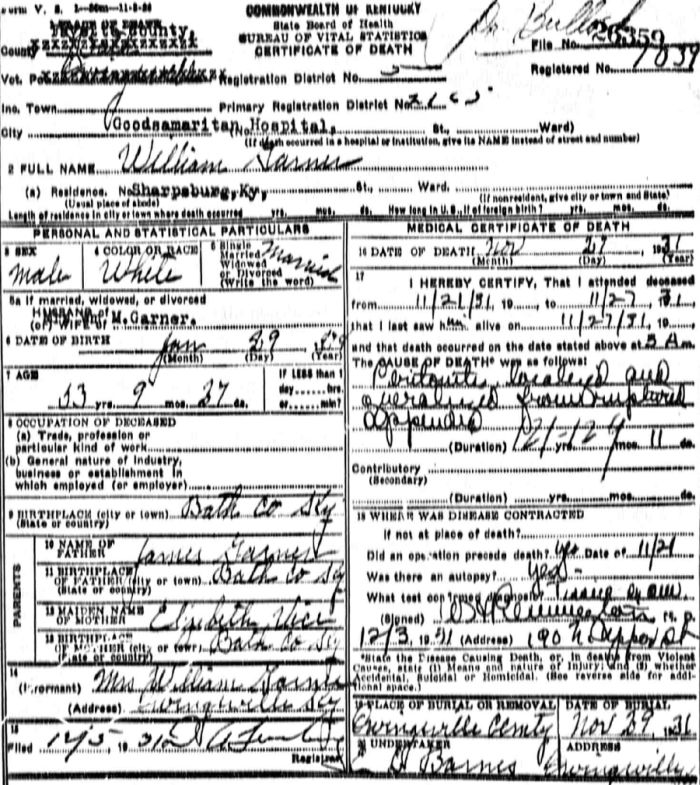 Form V. S. 1-50m-11-8-26
COMMONWEALTH OF KENTUCKY
State Board of Health
BUREAU OF VITAL STATISTICS
CERTIFICATE OF DEATH
PLACE OF DEATH
Fayette County,
County
File No. 26359
Registered No. 1037
Vot. Registration District No.
Inc. Town Primary Registration District No.
City Goodsamaritan Hospital, (No. St., Ward)
(If death occurred in a hospital or institution, give its NAME instead of street and number)
2 FULL NAME William Garner
(a) Residence. No. Sharpsburg, Ky, St., Ward.
(Usual place of abode) (If nonresident, give city or town and State)
Length of residence in city or town where death occurred yrs. mos. ds. How long in U. S., if of foreign birth? yrs. mos. ds.
PERSONAL AND STATISTICAL PARTICULARS
3 SEX 4 COLOR OR RACE 5 Single
Married
Widowed
or Divorced
(Write the word)
male White Married
5a If married, widowed, or divorced
HUSBAND of
(or) WIFE of M.Garner.
6 DATE OF BIRTH Jan 29
(Month) (Day) (Year)
7 AGE IF LESS than 1
day hrs.
or min?
53 yrs. 9 mos. 27 ds.
8 OCCUPATION OF DECEASED
(a) Trade, profession or
particular kind of work
(b) General nature of industry,
business or establishment in
which employed (or employer)
9 BIRTHPLACE (city or town) Bath Co Ky
(State or country)
PARENTS
10 NAME OF
FATHER James Garner
11 BIRTHPLACE
OF FATHER (city or town) Bath Co Ky
(State or country)
12 MAIDEN NAME
OF MOTHER Elizabeth Vice
13 BIRTHPLACE
OF MOTHER (city or town) Bath Co Ky
(State or country)
14
(Informant) Mrs William Garner
(Address) Owingsville Ky
15
Filed 12/5, 1931
Registrar
MEDICAL CERTIFICATE OF DEATH
16 DATE OF DEATH Nov 27 1931
(Month) (Day) (Year)
17 I HEREBY CERTIFY, That I attended deceased
from 11/21/31, 19 to 11/27 31
that I last saw him alive on 11/27/31, 19
and that death occurred on the date stated above at 5 Am.
The CAUSE OF DEATH* was as follows:
Peritonitis, localized and
generalized from ruptured
appendix
(Duration) yrs. mos. 11 ds.
Contributory
(Secondary)
(Duration) yrs. mos. ds.
18 WHERE WAS DISEASE CONTRACTED
If not at place of death?
Did an operation precede death? yes Date of 11/21
Was there an autopsy? yes
What test confirmed diagnosis? Tissue exam.
(Signed) M. D.
12/3, 1931 (Address) 190 N Upper St
*State the Disease Causing Death, or, in deaths from Violent
Causes, state (1) Means and nature of Injury; and (2) whether
Accidental, Suicidal or Homicidal. (See reverse side for addi-
tional space.)
19 PLACE OF BURIAL OR REMOVAL DATE OF BURIAL
Owingsville Cemty Nov 29, 1931
20 UNDERTAKER ADDRESS
Barnes Owingsville